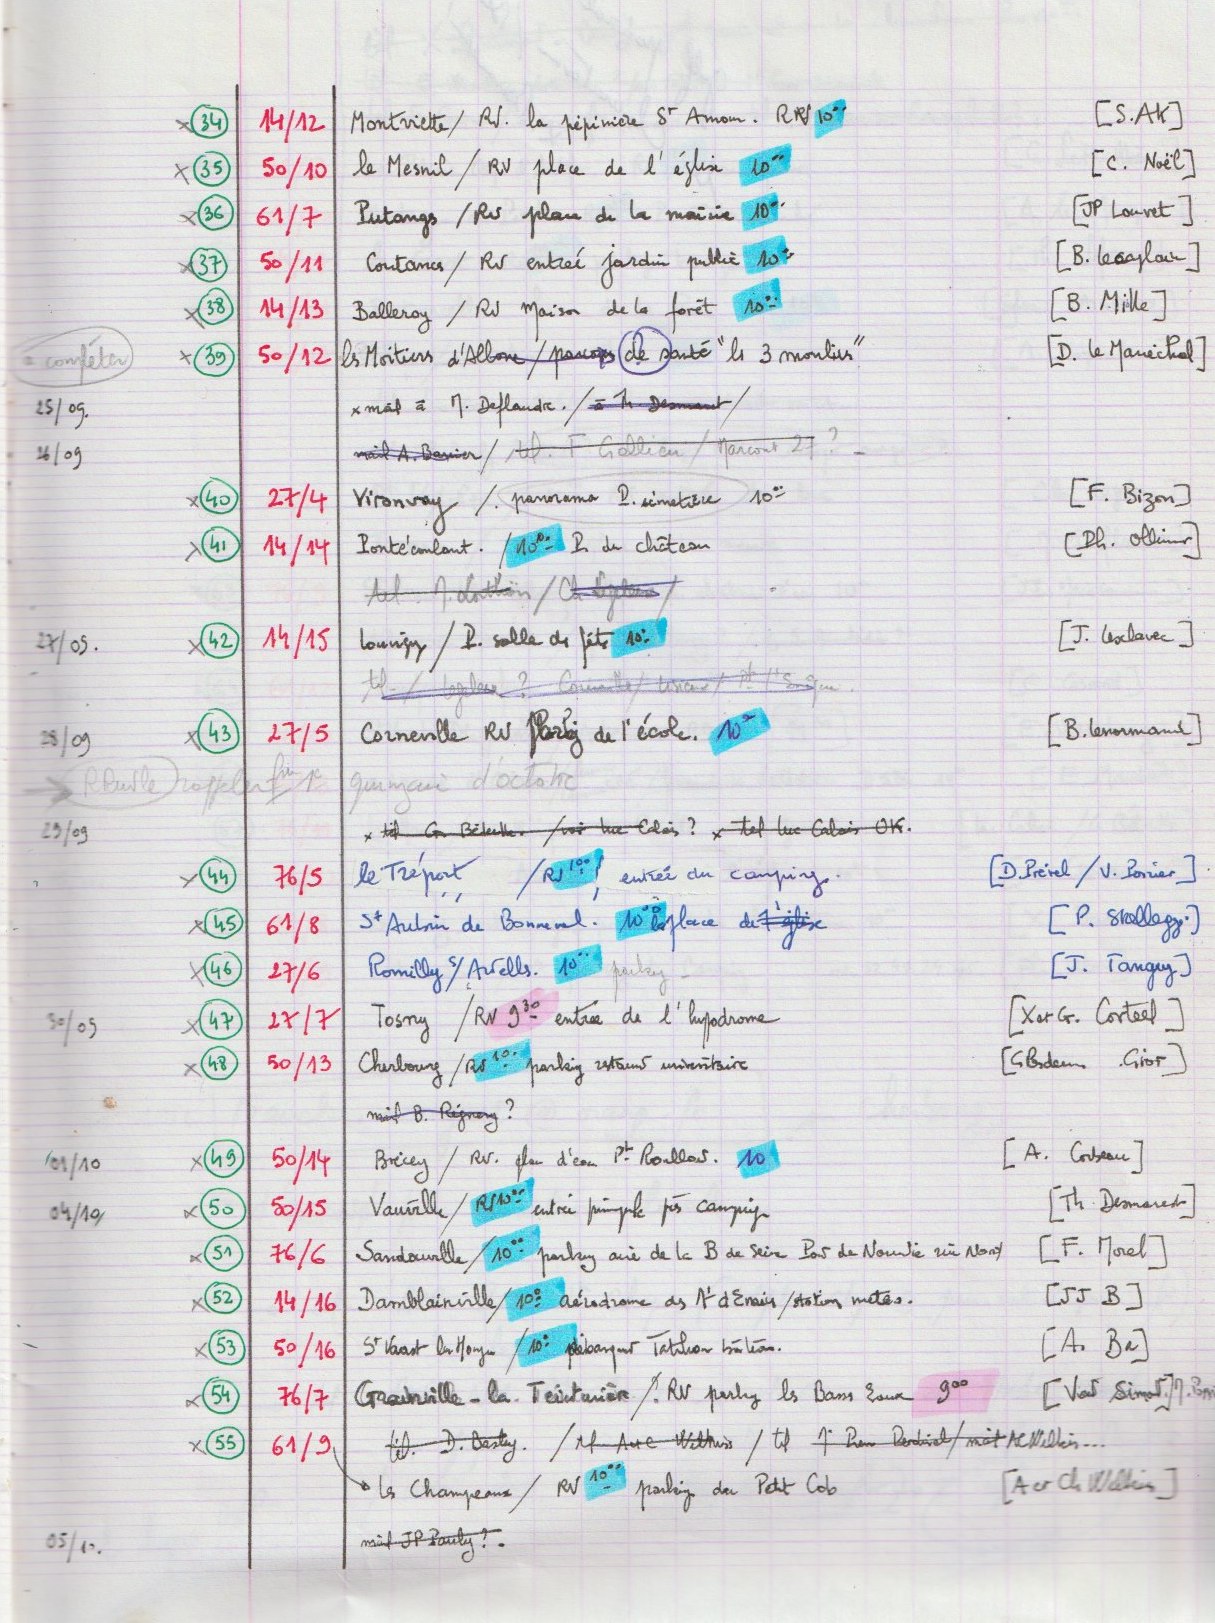 x 34 14/12 Montviette / RV. la pépinière St Amour. RV 10°° [S.AK]
x 35 50/10 le Mesnil / RV place de l'église 10°° [C. Noël]
x 36 61/7 Putanges / RV place de la mairie 10°° [JP Louvet]
x 37 50/11 Coutances / RV entreé jardin public 10°° [B. Lecaplain]
x 38 14/13 Balleroy / RV Maison de la forêt 10°° [B. Mille]
à compléter x 39 50/12 les Moitiers d'Allonne / parcours de santé "les 3 moulins" [D. le Maréchal]
25/09. x mail à M. Deflandre. / à Th Desmarest /
26/09 mail A. Barrier / tél. F Gallien / Marcour 27 ?
x 40 27/4 Vironvay / . panorama P. cimetière 10°° [F. Bizon]
x 41 14/14 Pontécoulant. / 10°° P. du château [Ph. Ollivier]
tel. M. / Ch /
27/09. x 42 14/15 Louvigny / P. salle des fêtes 10°° [J. Lesclavec]
tel / ? /
28/09 x 43 27/5 Corneville RV Parking de l'école. 10°° [B. Lenormand]
rappeler fin 1e quinzaine d'octobre
29/09 x tél G. / voir Luc Calais ? x tel Luc Calais OK.
x 44 76/5 le Tréport / RV 1°° entrée du camping. [D. Prével / V. Poirier]
x 45 61/8 St Aubin de Bonneval. 10°° place de l'église [P. Stallegger]
x 46 27/6 Romilly s/ Andelle. 10°° parking [J. Tanguy]
30/09 x 47 27/7 Tosny / RV 9 30 entrée de l'hypodrome [X et G. Corteel]
x 48 50/13 Cherbourg / RV 10 parking restaurant universitaire
mail B. Régnery ?
01/10 x 49 50/14 Brécey / RV. plan d'eau Pt Roulland. 10 [A. Corbeau]
04/10 x 50 50/15 Vauville / RV 10°° entrée principale près camping [Th. Desmarest]
x 51 76/6 Sandouville / 10°° parking aire de la B de Seine Pont de Normandie rive Nord [F. Morel]
x 52 14/16 Damblainville / 10°° aérodrome des Mt d'Eraines / station météo. [JJ B]
x 53 50/16 St Vaast la Hougue / 10°° débarquer Tatihou bâteau. [A. Ba]
x 54 76/7 Grainville - la Teinturière / . RV parking les Basses Eaux 9°° [Simon]
x 55 61/9 tél. D. / tel A et C Wilkins / tel / mail AC Wilkins ...
les Champeaux / RV 10°° parking du Petit Cob [A et Ch Wilkins]
05/10. mail JP Pauly ? .